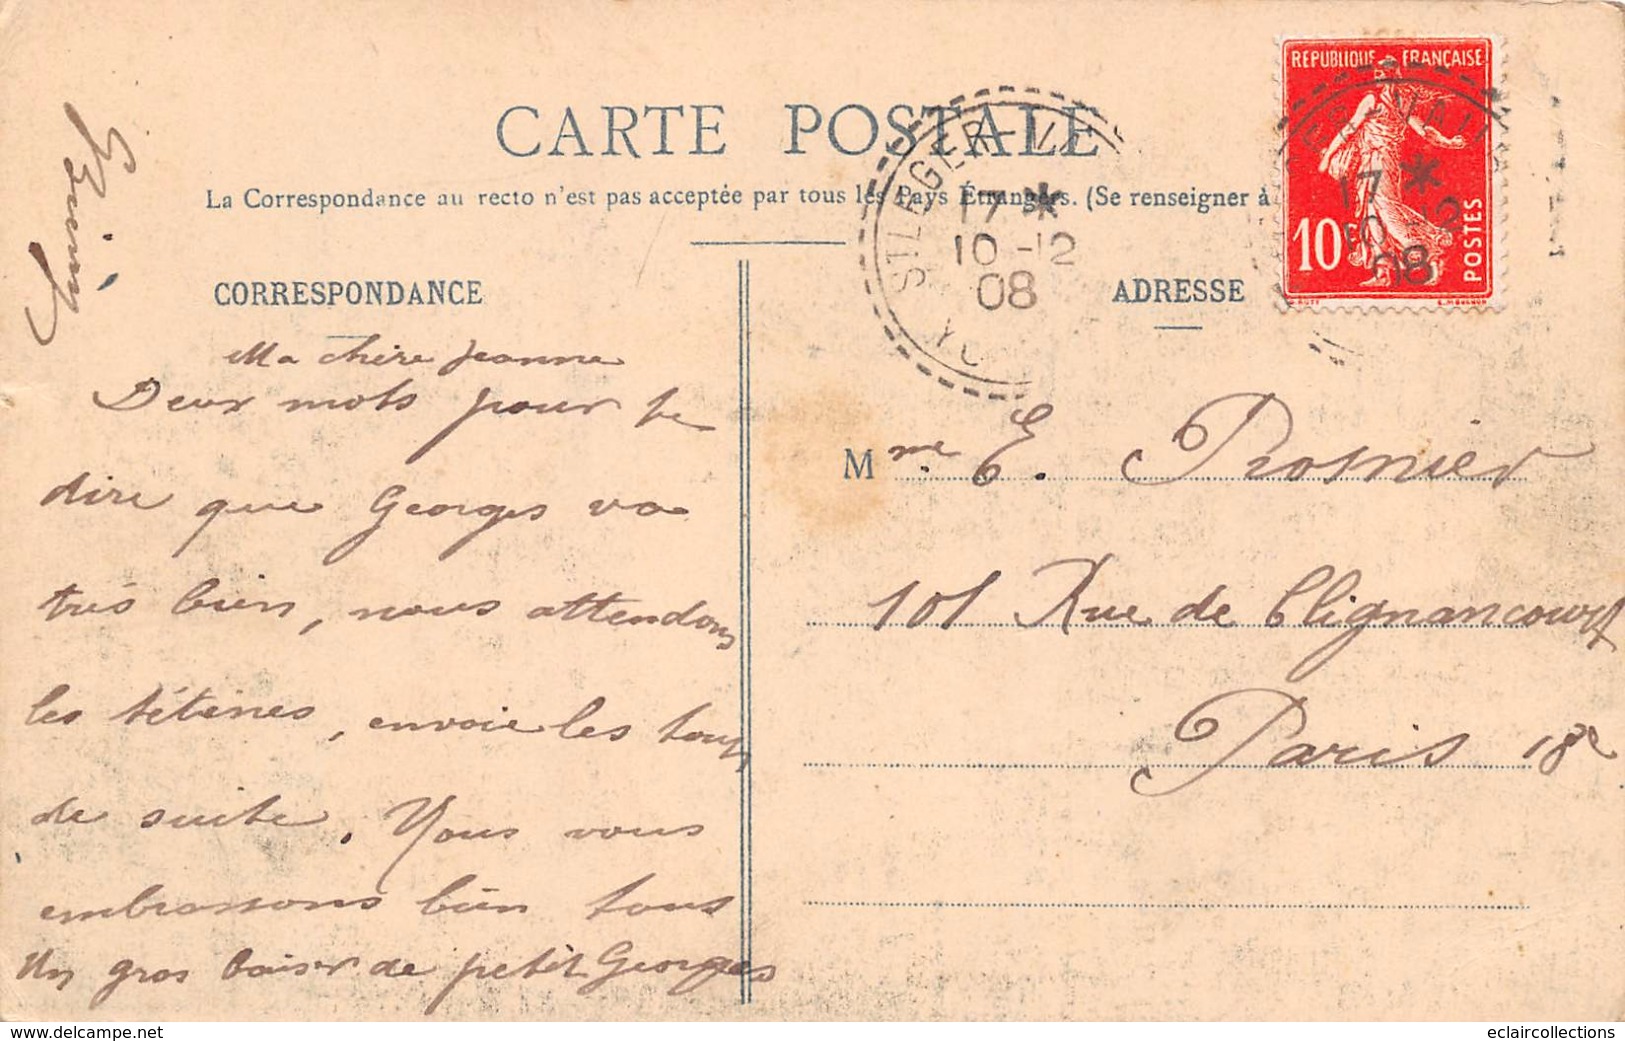 CARTE POSTALE
La Correspondance au recto n'est pas acceptée par tous les Pays Étrangers. (Se renseigner à
CORRESPONDANCE
Ma chère Jeanne
Deux mots pour te
dire que Georges va
très bien, nous attendons
les tétines, envoie les tout
de suite. Nous vous
embrassons bien tous
Un gros baiser de petit Georges
ST LEGER-V
17 *
10-12
08
YO
ADRESSE
REPUBLIQUE FRANÇAISE
10c
POSTES
17 *
10-12
08
Mme E. Prosnier
101 Rue de Clignancourt
Paris 18e
www.delcampe.net
eclaircollections